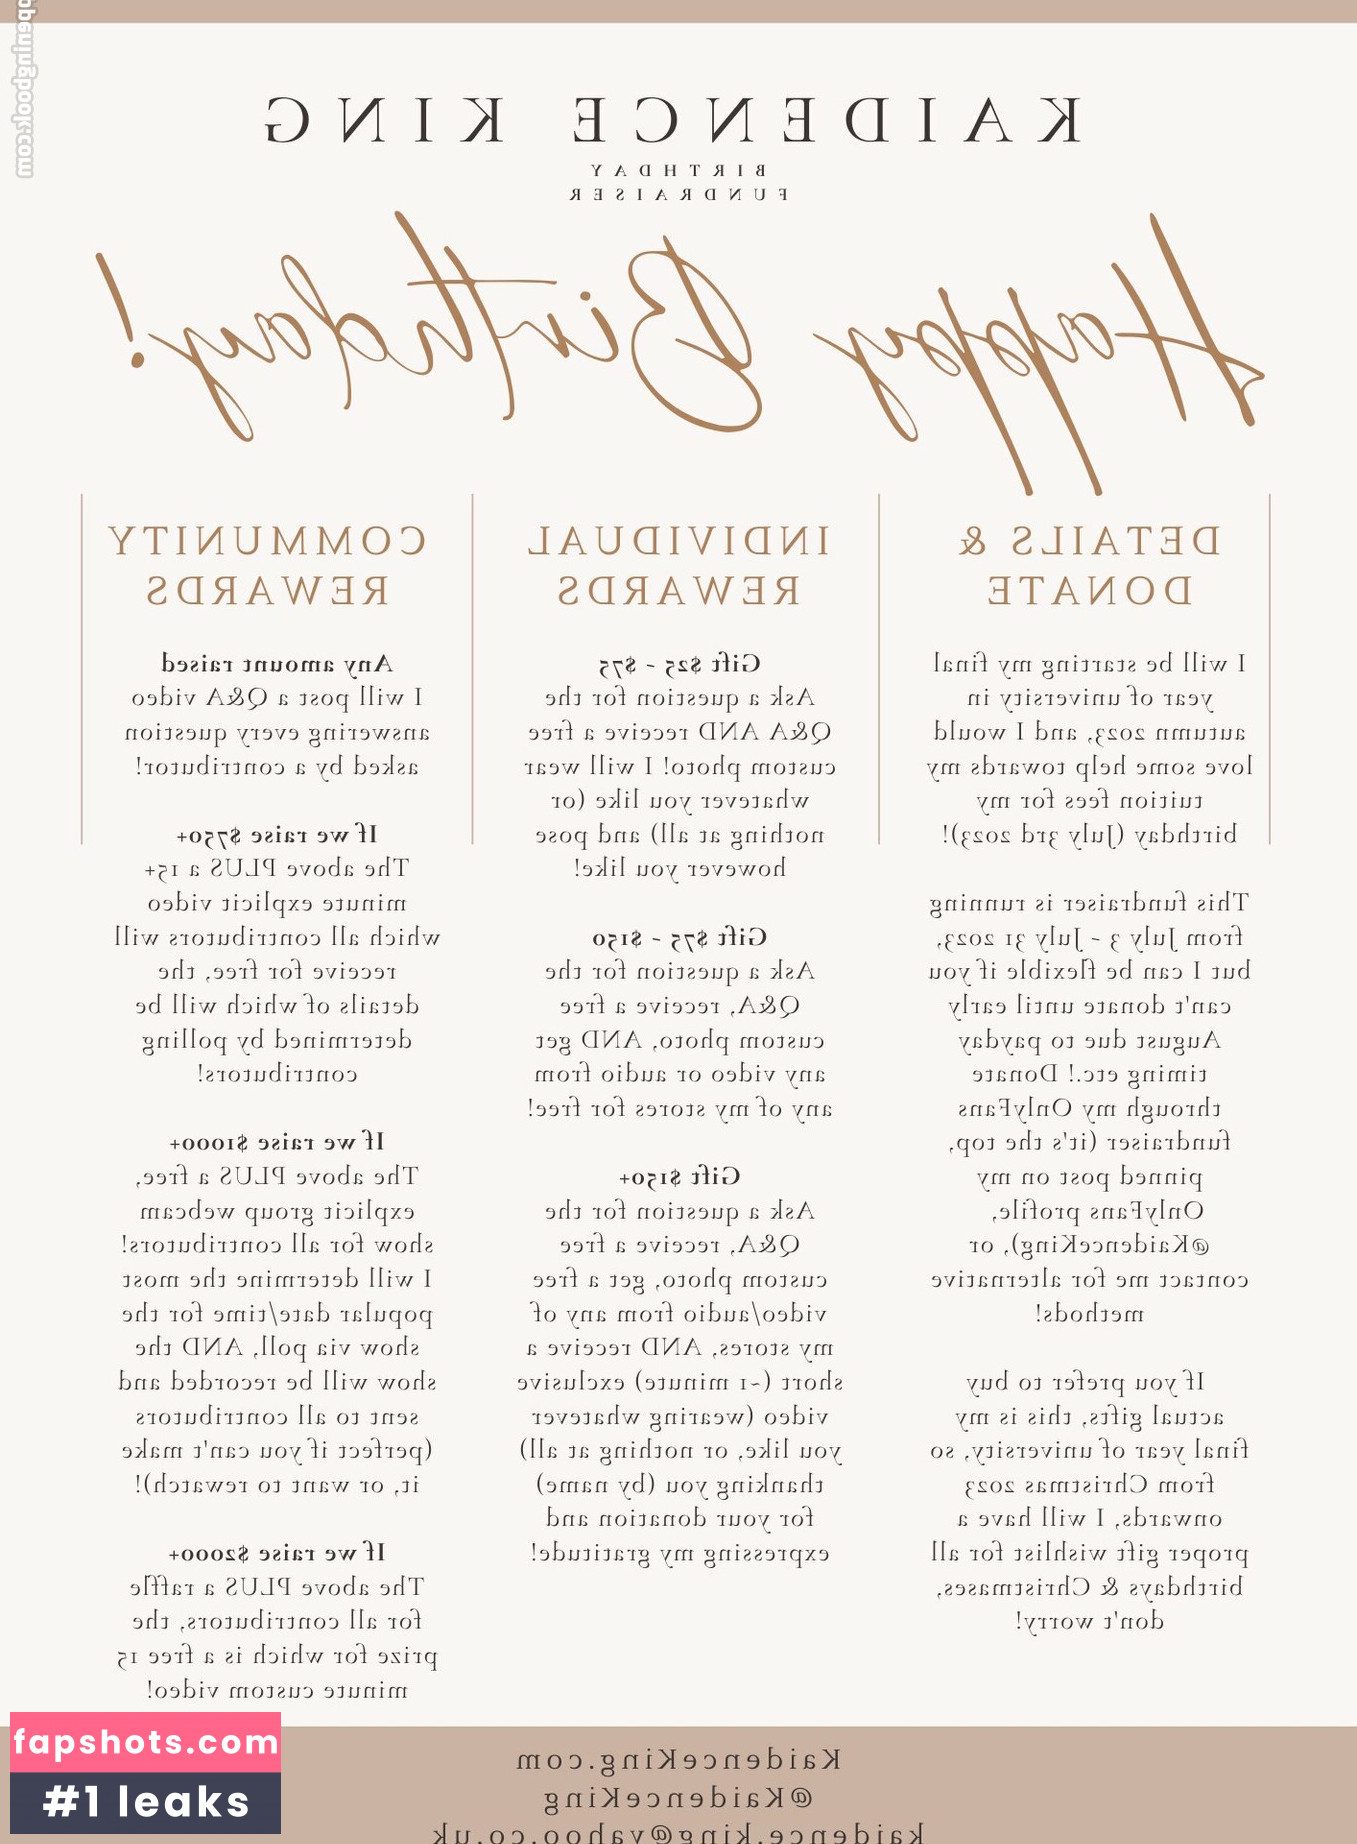 KAIDENCE KING
BIRTHDAY
FUNDRAISER
Happy Birthday!
DETAILS &
DONATE
I will be starting my final
year of university in
autumn 2023, and I would
love some help towards my
tuition fees for my
birthday (July 3rd 2023)!
This fundraiser is running
from July 3 - July 31 2023,
but I can be flexible if you
can't donate until early
August due to payday
timing etc.! Donate
through my OnlyFans
fundraiser (it's the top,
pinned post on my
OnlyFans profile,
@KaidenceKing), or
contact me for alternative
methods!
If you prefer to buy
actual gifts, this is my
final year of university, so
from Christmas 2023
onwards, I will have a
proper gift wishlist for all
birthdays & Christmases,
don't worry!
INDIVIDUAL
REWARDS
Gift $25 - $75
Ask a question for the
Q&A AND receive a free
custom photo! I will wear
whatever you like (or
nothing at all) and pose
however you like!
Gift $75 - $150
Ask a question for the
Q&A, receive a free
custom photo, AND get
any video or audio from
any of my stores for free!
Gift $150+
Ask a question for the
Q&A, receive a free
custom photo, get a free
video/audio from any of
my stores, AND receive a
short (~1 minute) exclusive
video (wearing whatever
you like, or nothing at all)
thanking you (by name)
for your donation and
expressing my gratitude!
COMMUNITY
REWARDS
Any amount raised
I will post a Q&A video
answering every question
asked by a contributor!
If we raise $750+
The above PLUS a 15+
minute explicit video
which all contributors will
receive for free, the
details of which will be
determined by polling
contributors!
If we raise $1000+
The above PLUS a free,
explicit group webcam
show for all contributors!
I will determine the most
popular date/time for the
show via poll, AND the
show will be recorded and
sent to all contributors
(perfect if you can't make
it, or want to rewatch)!
If we raise $2000+
The above PLUS a raffle
for all contributors, the
prize for which is a free 15
minute custom video!
KaidenceKing.com
@KaidenceKing
kaidence.king@yahoo.co.uk
fapshots.com
#1 leaks